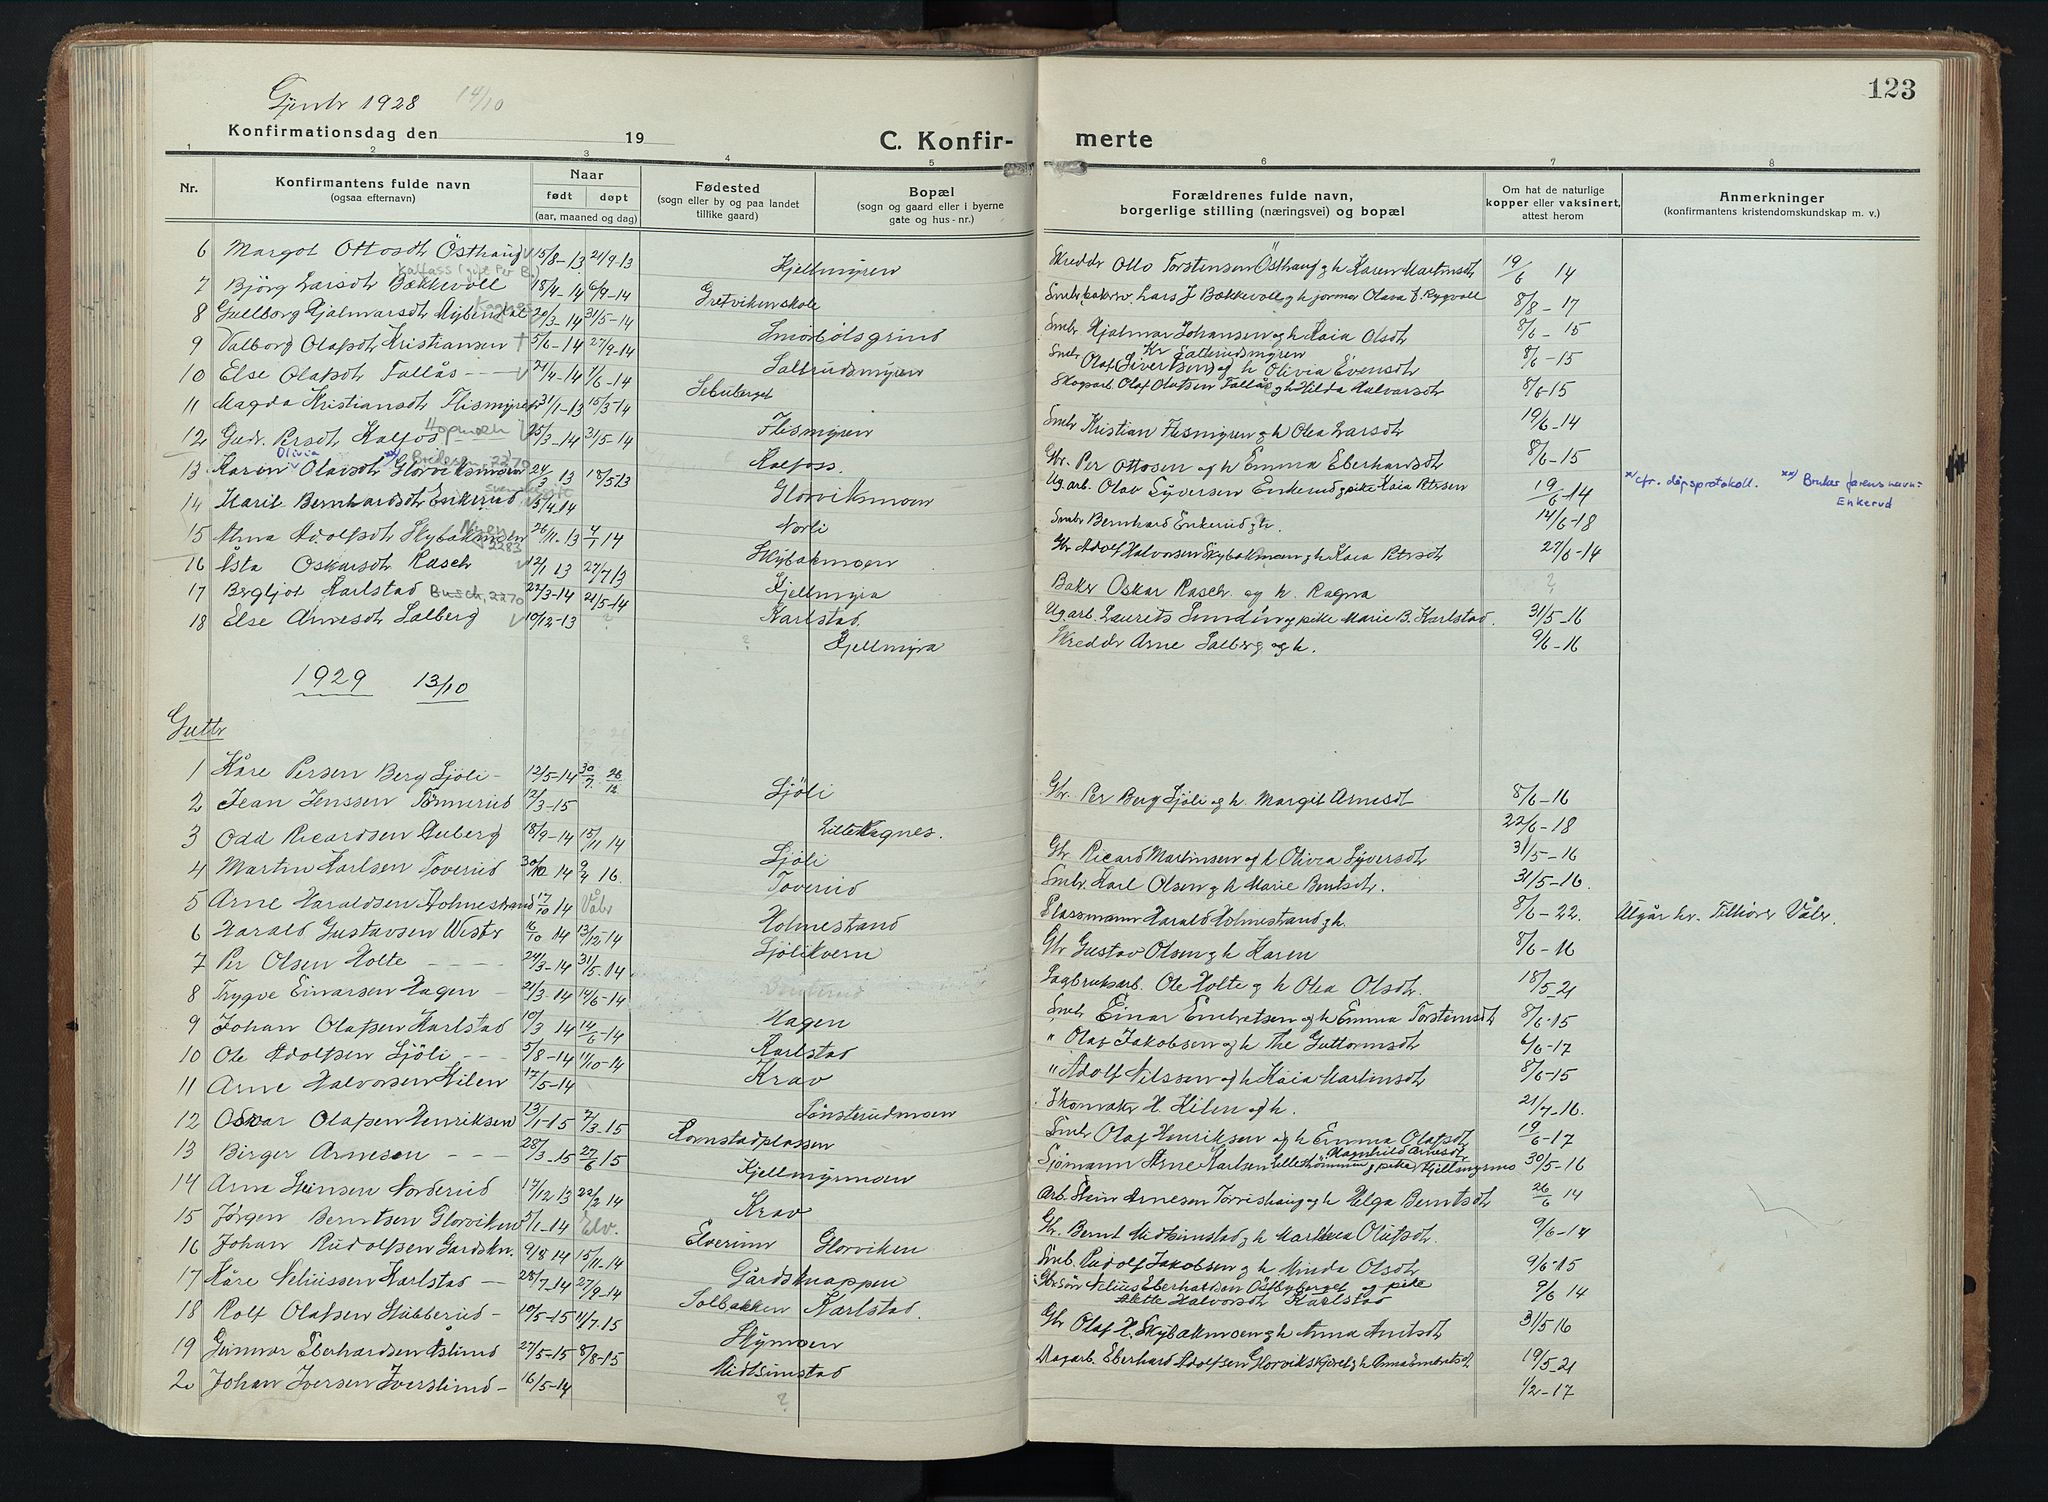 123
Gjenter 1928 14/10
Konfirmationsdag den 19
C. Konfir- merte
1 2 3 4 5 6 7 8
Nr. Konfirmantens fulde navn (ogsaa efternavn) Naar født døpt (aar, maaned og dag) Fødested (sogn eller by og paa landet tillike gaard) Bopæl (sogn og gaard eller i byerne gate og hus-nr.) Forældrenes fulde navn, borgerlige stilling (næringsvei) og bopæl Om hat de naturlige kopper eller vaksinert, attest herom Anmerkninger (konfirmantens kristendomskundskap m. v.)
6 Margot Ottosdtr Östhaug 15/8-13 21/9-13 Kjellmyren Skredder Otto Torstensen Östhaug og h Karen Martinsdt 19/6 14
7 Bjørg Larsdtr Bækkevoll 18/4-14 6/9-14 Gretvikenskole Lars J Bækkevoll og h Olava f. Rygvoll 8/8-17
8 Gullborg Hjalmarsdtr 20/3-14 31/5-14 Smørbølsgrind Smbr Hjalmar Johansen og h Kaia Olsdt 8/6-15
9 Valborg Olafsdtr Kristiansen 5/6-14 27/9-14 Salterudsmyren Smbr Olaf Sivertsen og h Olivia Evensdtr 8/6-15
10 Else Olafsdtr Fallås 21/4-14 1/6-14 Sebuberget Skogarb Olaf Olafsen Fallås og h Hilda Halvorsdtr 8/6-15
11 Magda Kristiansdtr Flismyren 31/1-13 15/3-14 Flismyren Smbr Kristian Flismyren og h Olea Larsdtr 19/6-14
12 Gudr. Persdtr Kalfos 25/3-14 31/5-14 Kalfoss. Gbr. Per Ottosen og h Emma Eberhardsdt 8/6-15
13 Karen Olivia Olavsdtr Glorviksmoen 24/3 13 18/5 13 Glorviksmoen Ug.arb. Olav Syversen Enkerud og pike Kaia Petersen 19/6-14 x) cfr. dåpsprotokoll. xx) Bruker farens navn = Enkerud
14 Marit Bernhardsdtr Enkerud 15/4.14 Norli Smbr Bernhard Enkerud og h. 14/6-18
15 Alma Adolfsdtr Skybakmoen 26/11-13 4/1 14 Skybakmoen Gbr Adolf Halvorsen Skybakmoen og h Kaia Petersdt 27/6-14
16 Åsta Oskarsdtr Rasch 12/1 13 27/7 13 Kjellmyra Baker Oskar Rasch og h. Ragna ?
17 Bergljot Karlstad Busch, 2270 22/3-14 21/5-14 Karlstad Ug.arb. Laurits Sundin og pike Marie B. Karlstad. 31/5-16
18 Else Arnesdtr Salberg 10/12-13 ? ? Kjellmyra Skredder Arne Salberg og h. 9/6-16
1929 13/10
Gutter
1 Kåre Persen Berg Sjöli 12/5-14 30/7. 26/12 Sjöli Gbr. Per Berg Sjöli og h. Margit Arnesdt 8/6-16
2 Jean Jenssen Tönnerud 12/3-15 Lille Kagnes. 22/6-18
3 Odd Ricardsen Auberg 18/9-14 15/11 14 Sjöli Gbr Ricard Martinsen og h Olivia Syversdt 31/5-16
4 Martin Karlsen Toverud 30/10 14 9/4 16. Toverud Smbr. Karl Olsen og h Marie Berntsdt. 31/5-16
5 Arne Haraldsen Holmestrand 17/10 14 Våler Holmestrand Plassmann Harald Holmestrand og h. 8/6-22. Utgår hr. Tilhører Våler.
6 Harald Gustavsen Wister 16/10 14 13/12 14 Sjölikvern Gbr Gustav Olsen og h Karen 8/6-16
7 Per Olsen Holte 24/3-14 31/5.14 Sagbruksarb. Ole Holte og h Olea Olsdtr. 18/5-21
8 Trygve Einarsen Hagen 21/3-14 14/6-14 Hagen Smbr Einar Embretsen og h Emma Torstensdt 8/6-15
9 Johan Olafsen Karlstad 10/3 14 14/6-14 Karlstad " Olaf Jakobsen og h The Guttormsdtr 6/6-17
10 Ole Adolfsen Sjöli 5/8-14 11/10-14 Krav " Adolf Nilssen og h Kaia Martinsdt 8/6-15
11 Arne Halvorsen Kilen 17/5-14 Sönsterudmoen Skomaker H. Kilen og h. 21/7-16.
12 Oskar Olafsen Henriksen 13/1-15 7/3-15 Kornstadplassen Smbr Olaf Henriksen og h Emma Olafsdt 19/6-17
13 Birger Arnesen 28/3-15 27/6 15 Kjellmyrmoen Sjømann Arne Karlsen og pike Magnhild Arnesdtr Kjellmyrmo 30/5-16
14 Arne Steinsen Norderud 17/12 13 22/2 14 Krav Arb. Stein Arnesen Torrishaug og h Helga Berntsdt 26/6 14
15 Jørgen Berntsen Glorviken 5/1-14 Elv. Elverum Glorviken Gbr. Bernt Midtsimstad og h Marthea Olufsdt. 9/6-14
16 Johan Rudolfsen Gardskn. 9/8 14 15/11-14 Gårdsknappen Smb. Rudolf Jakobsen og h Minda Olsdt 9/6-15
17 Kåre Neliussen Karlstad 28/7-14 27/9-14 Solbakken Karlstad Gbrsön Nelius Eberhardsen Östbyberget og pike Halvorsdt Karlstad 9/6 14
18 Rolf Olafsen Stubberud 10/5-15 11/7.15 Skymoen Gbr Olaf H. Skybakmoen og h Anna Antsdt 31/5 16
19 Gunnar Eberhardsen Åslund 27/5-15 8/8-15 Midtsimstad Eberhard Adolfsen og h 19/5-21
20 Johan Iversen Iverslund 16/5-14 ? 1/2-17